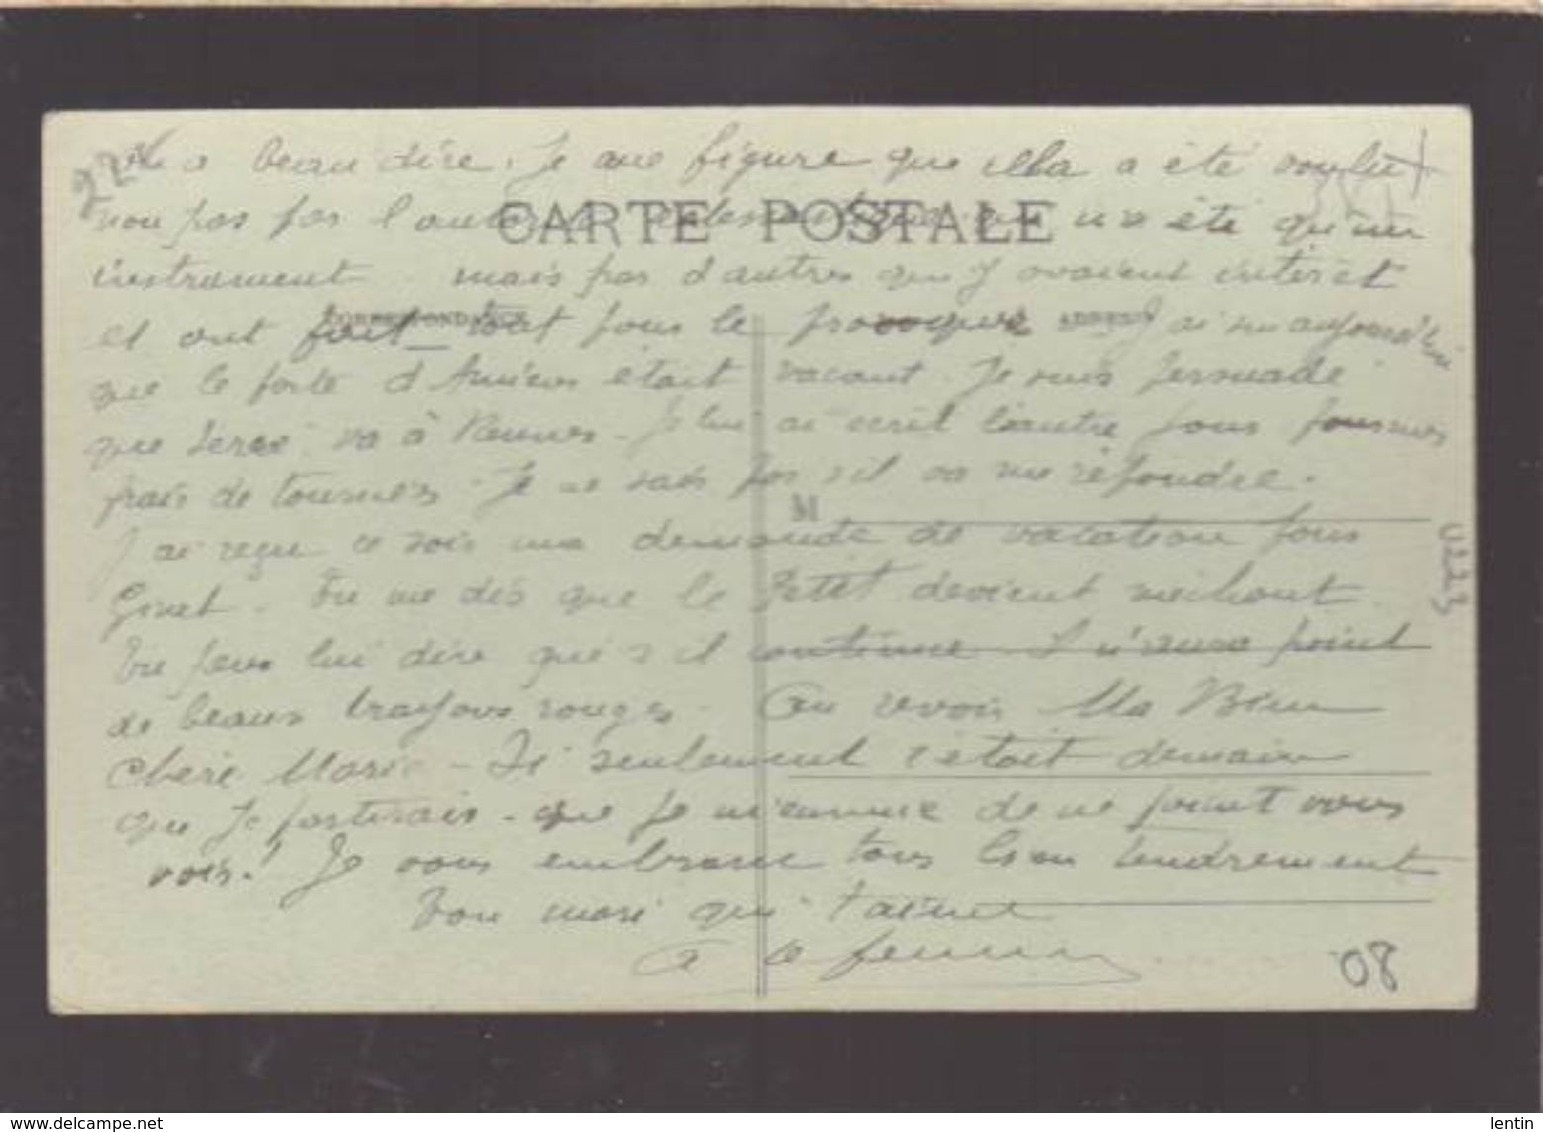 a beau dire. Je me figure que cela a été voulu
non pas par l'autre n'a été qu'un
CARTE POSTALE
instrument mais par d'autres qui y avaient intérêt
et ont fait tout pour le provoquer J'ai vu aujourd'hui
CORRESPONDANCE
ADRESSE
que le poste d'Amiens était vacant. Je suis persuadé
que va à Rennes. Je lui ai écrit l'autre jour pour
frais de tournées. Je ne sais pas s'il va me répondre.
M
J'ai reçu ce soir une demande de vacation pour
Givet. Tu me dis que le petit devient méchant
Tu peux lui dire que s'il continue il n'aura point
de beaux crayons rouges. Au revoir Ma Bien
Chère Marie - Si seulement c'était demain
que je partirais - que je m'ennuie de ne point vous
voir! Je vous embrasse tous bien tendrement
Ton mari qui t'aime
08
www.delcampe.net
lentin